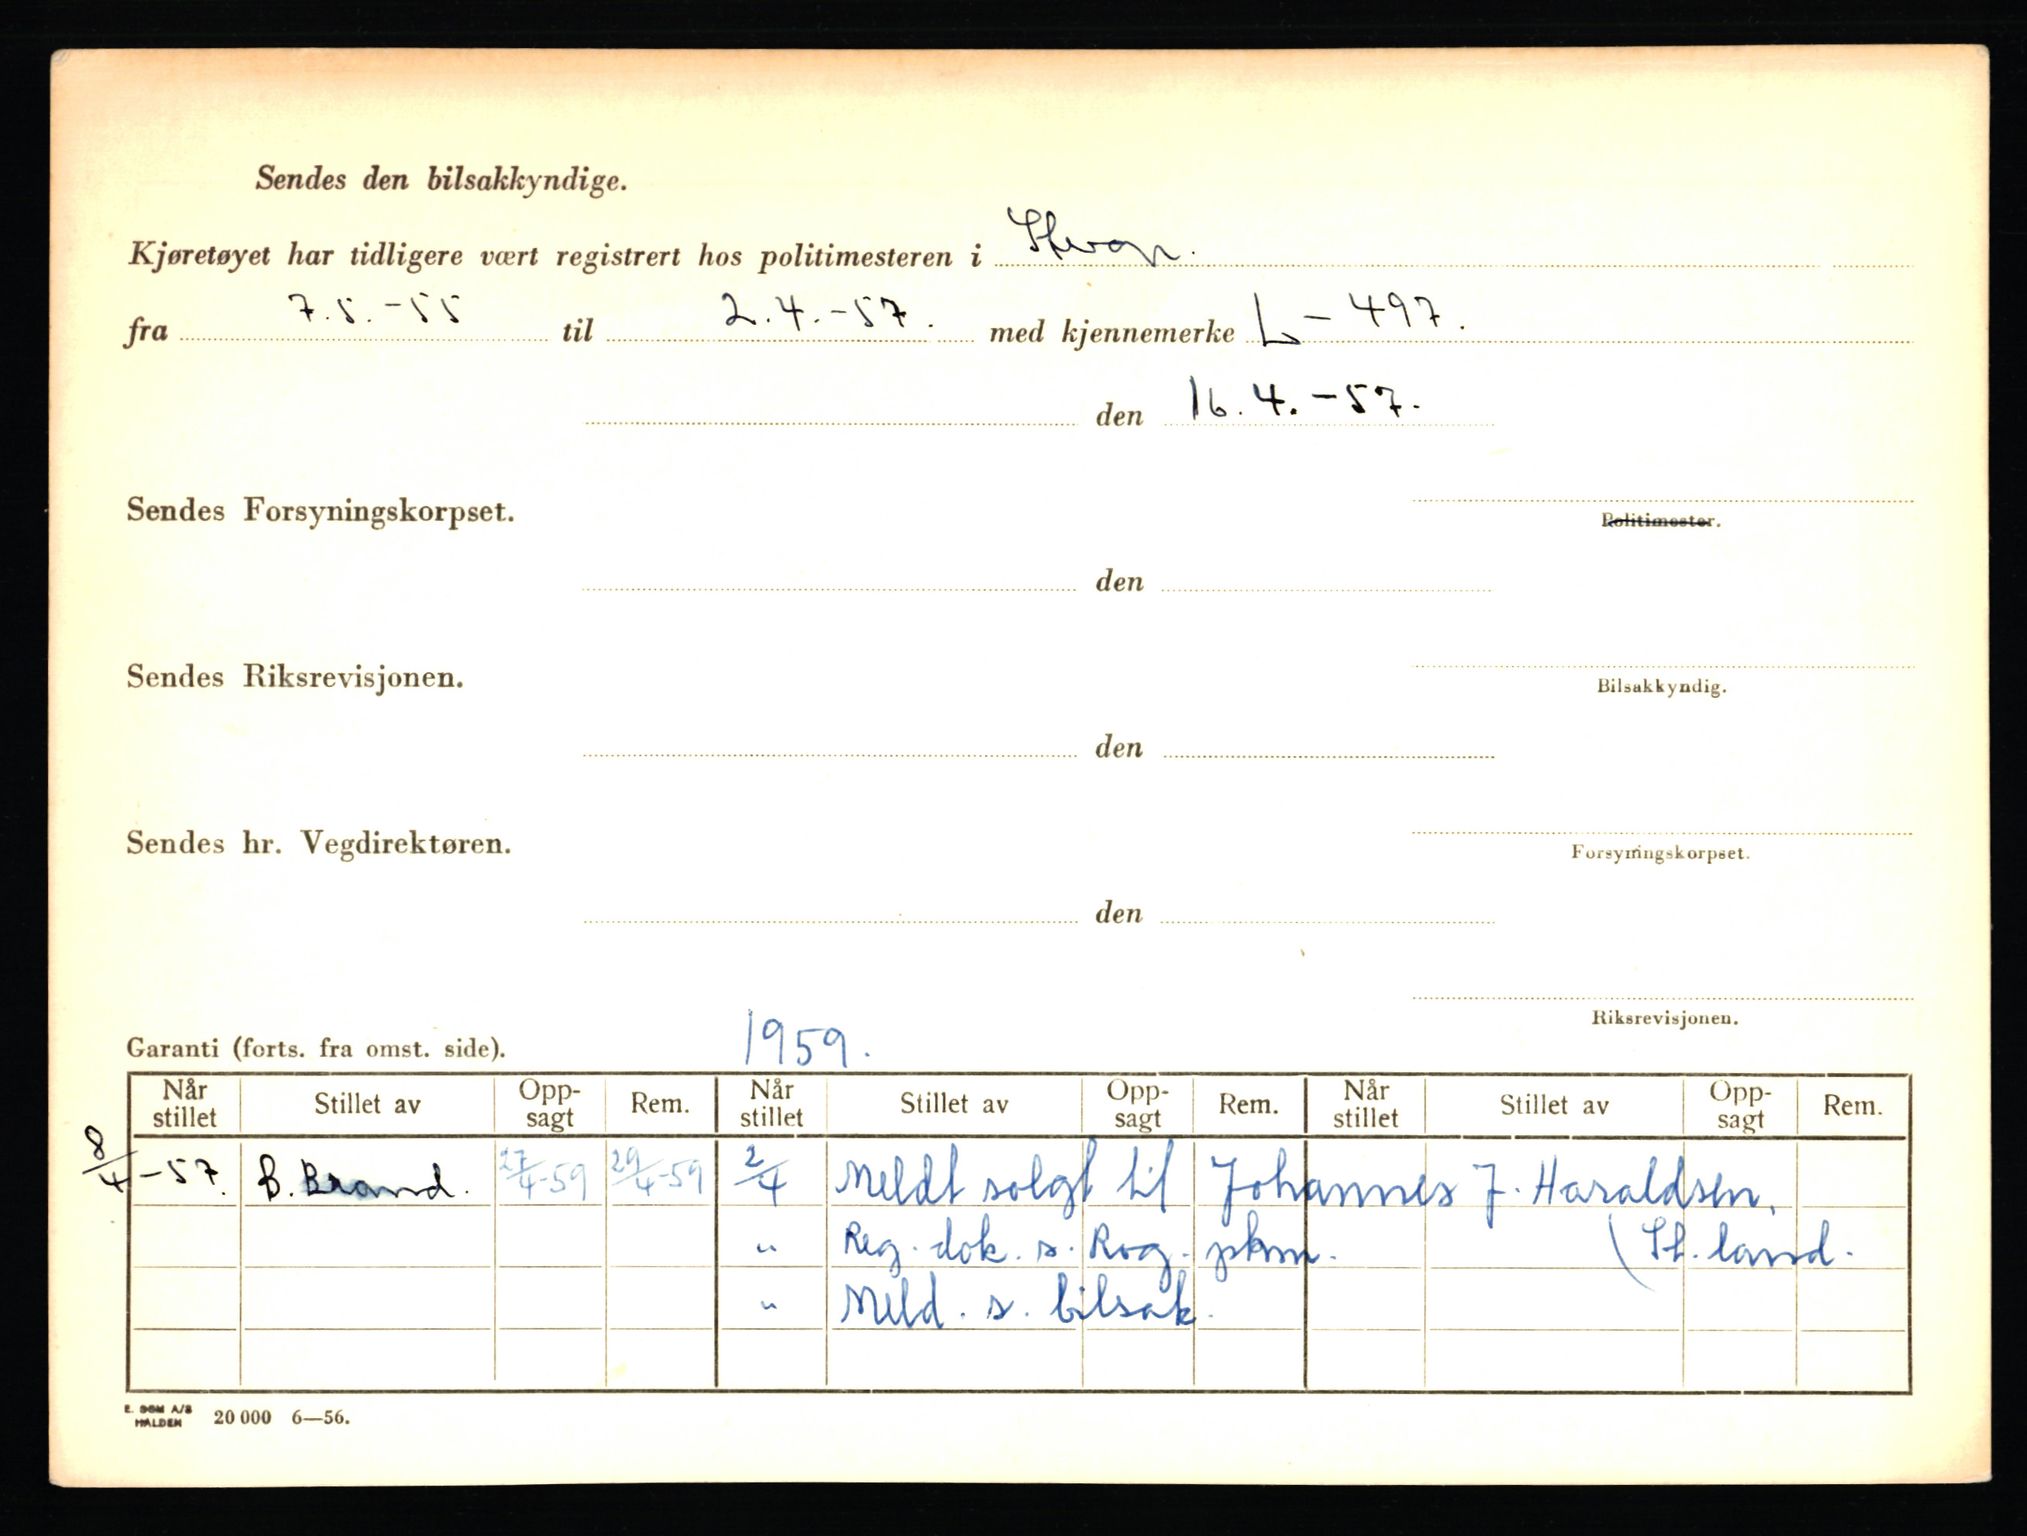 Sendes den bilsakkyndige.
Kjøretøyet har tidligere vært registrert hos politimesteren i Stvgr.
fra 7.5.-55 til 2.4.-57. med kjennemerke L-497.
den 16.4.-57.
Sendes Forsyningskorpset.
Politimester.
den
Sendes Riksrevisjonen.
Bilsakkyndig.
den
Sendes hr. Vegdirektøren.
Forsyningskorpset.
den
Riksrevisjonen.
Garanti (forts. fra omst. side). 1959.
Når stillet Stillet av Opp-sagt Rem. Når stillet Stillet av Opp-sagt Rem. Når stillet Stillet av Opp-sagt Rem.
8/4-57. B. Brand. 27/4-59 29/4-59 2/4 Meldt solgt til Johannes J. Haraldsen,
" Reg. dok. s. Rog. pkm. (St. land.
" Meld. s. bilsak.
E. SEM A/S HALDEN 20 000 6—56.